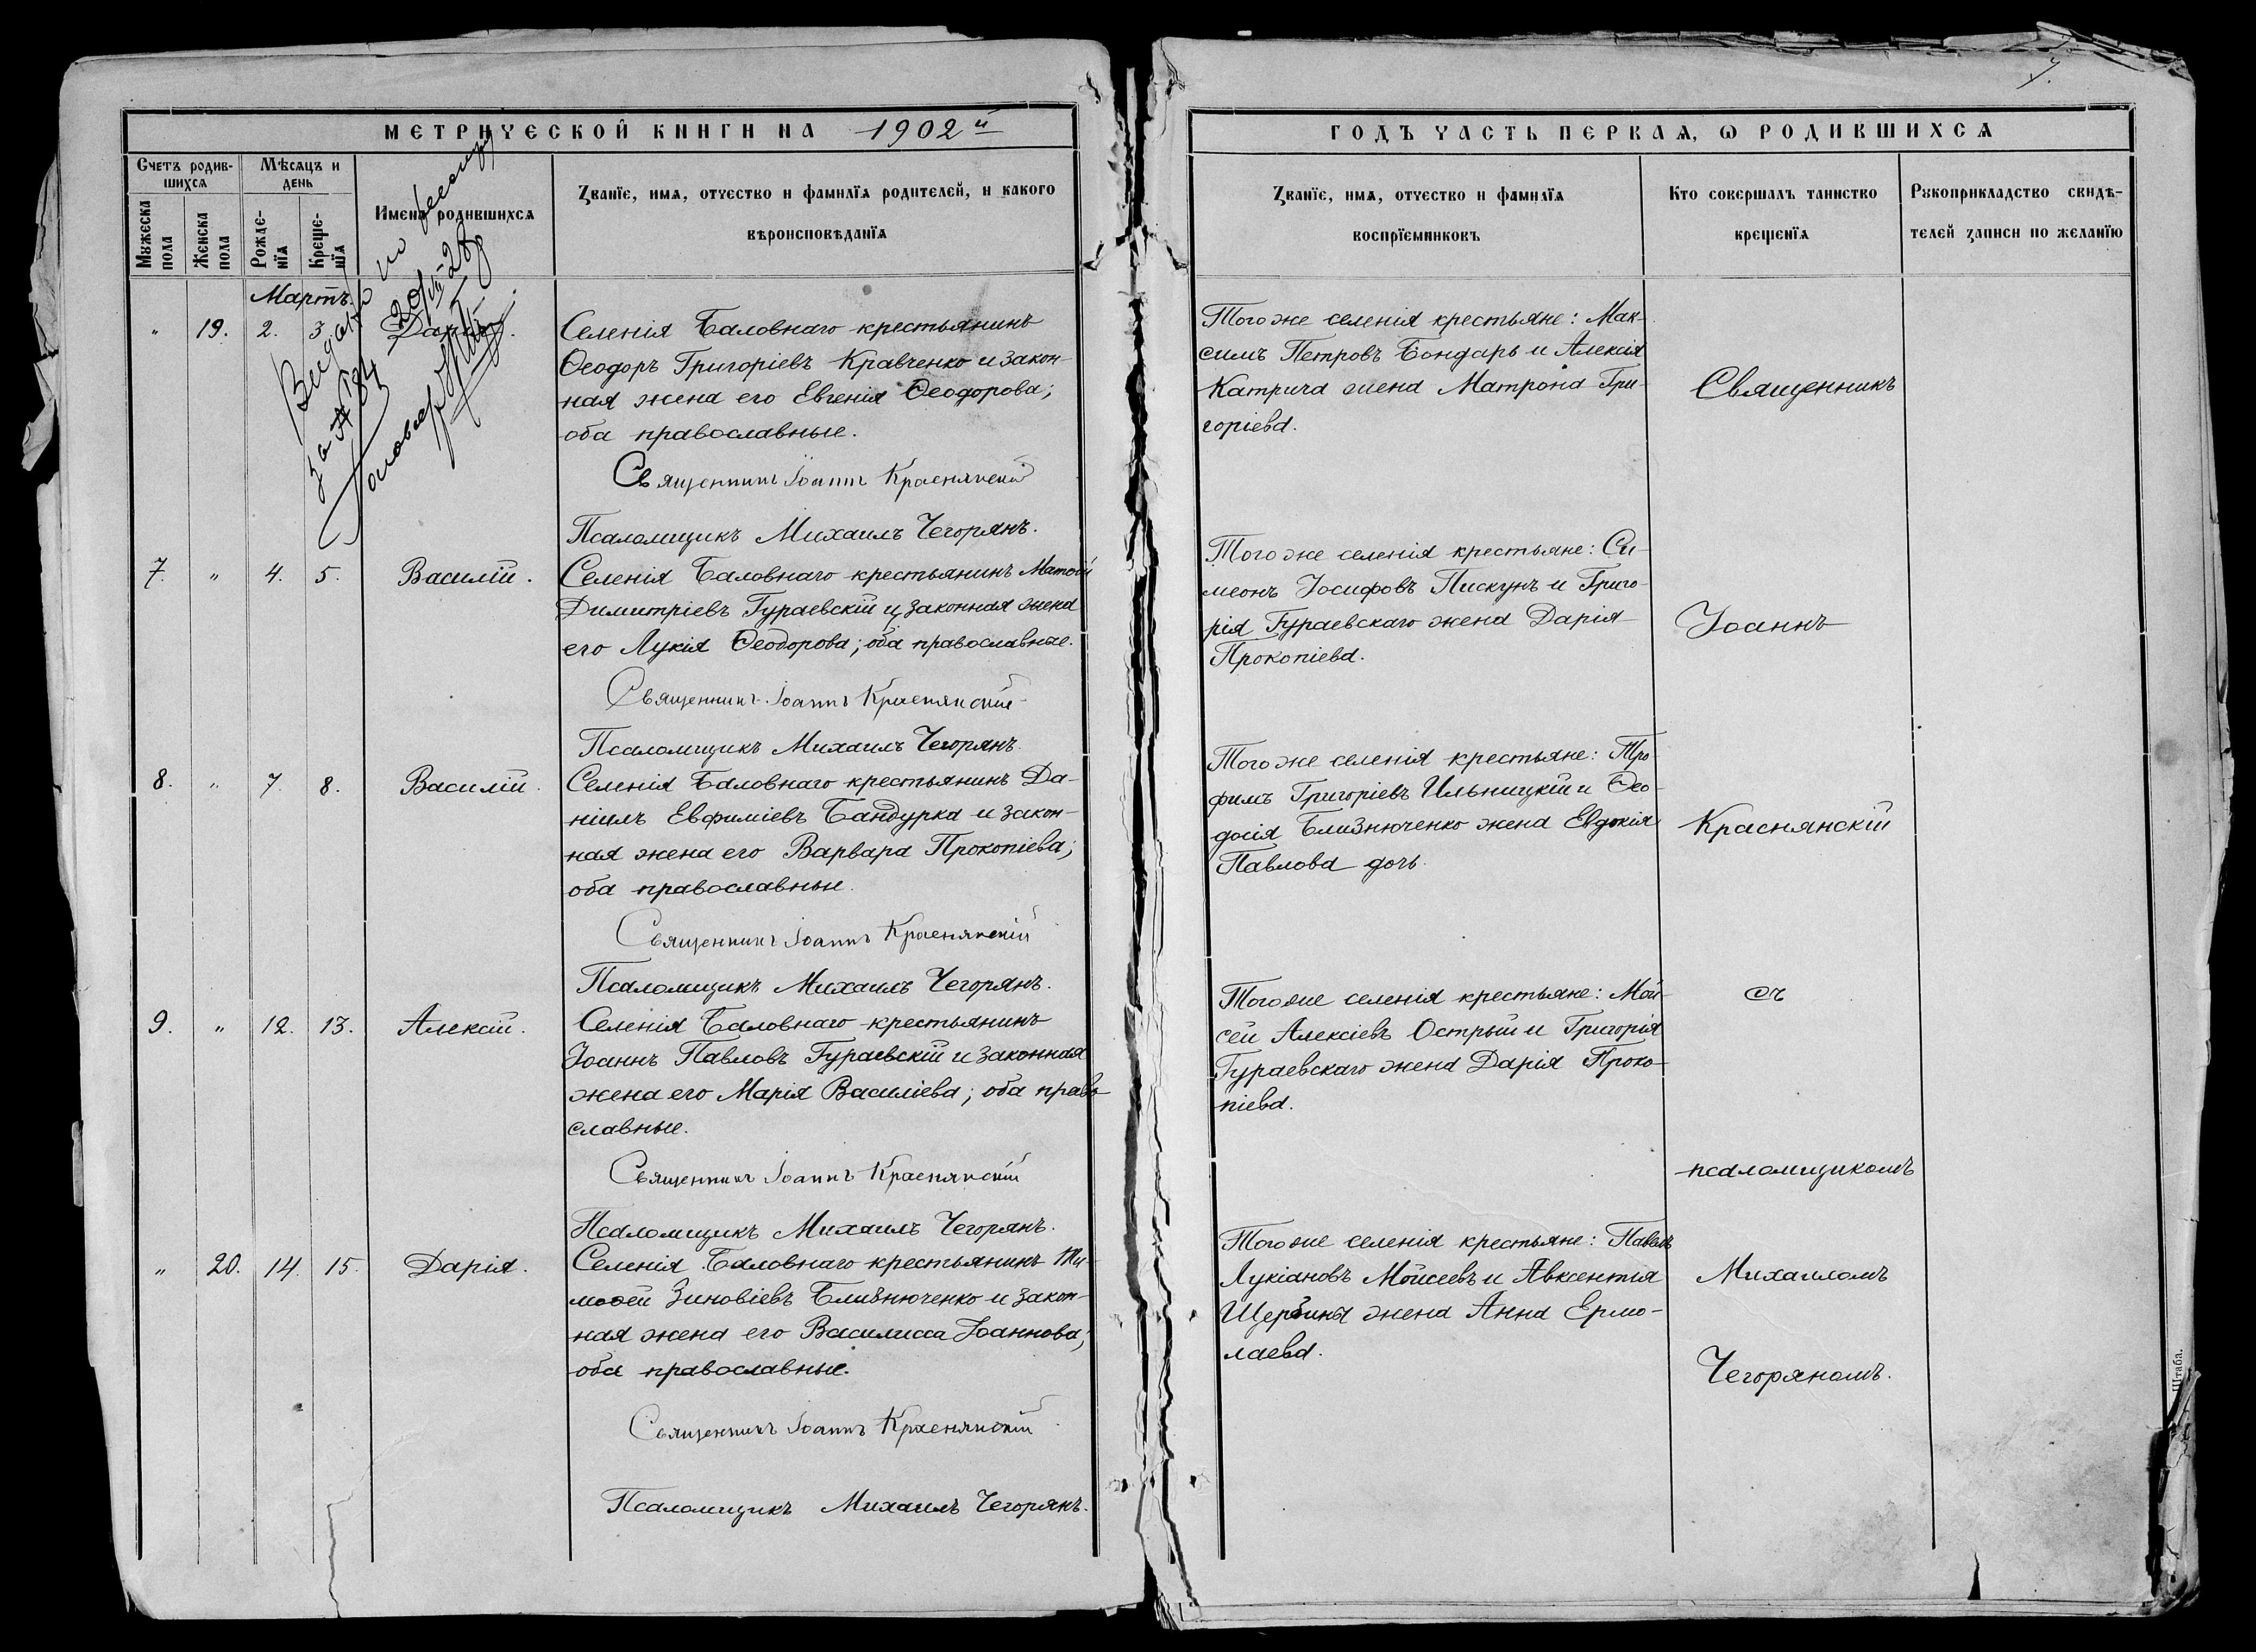 7.
МЕТРИЧЕСКОЙ КНИГИ НА 1902й
ГОДЪ ЧАСТЬ ПЕРВАЯ, Ѡ РОДИВШИХСЯ
Счетъ родив-
шихся
Мѣсяцъ и
день
Мужеска
пола
Женска
пола
Рожде-
нія
Креще-
нія
Имена родившихся
Званіе, имя, отчество и фамилія родителей, и какого
вѣроисповѣданія
Званіе, имя, отчество и фамилія
воспріемниковъ
Кто совершалъ таинство
крещенія
Рукоприкладство свидѣ-
телей записи по желанію
Мартъ.
" 19. 2. 3. Дарія.
Селенія Баловнаго крестьянинъ
Ѳеодоръ Григоріевъ Кравченко и закон-
ная жена его Евгенія Ѳеодорова;
оба православные.
Священникъ Іоаннъ Краснянскій
Псаломщикъ Михаилъ Чегорянъ.
Того же селенія крестьяне: Мак-
симъ Петровъ Бондарь и Алексія
Катрича жена Матрона Гри-
горіева.
7. " 4. 5. Василій.
Селенія Баловнаго крестьянинъ Матѳій
Димитріевъ Гураевскій и законная жена
его Лукія Ѳеодорова; оба православные.
Священникъ Іоаннъ Краснянскій
Псаломщикъ Михаилъ Чегорянъ.
Того же селенія крестьяне: Си-
меонъ Іосифовъ Пискунъ и Григо-
рія Гураевскаго жена Дарія
Прокопіева.
8. " 7. 8. Василій.
Селенія Баловнаго крестьянинъ Да-
ніилъ Евфиміевъ Бандурка и закон-
ная жена его Варвара Прокопіева;
оба православные.
Священникъ Іоаннъ Краснянскій
Псаломщикъ Михаилъ Чегорянъ.
Того же селенія крестьяне: Тро-
фимъ Григоріевъ Ильницкій и Ѳео-
досія Близнюченко жена Евдокія
Павлова дочь.
9. " 12. 13. Алексій.
Селенія Баловнаго крестьянинъ
Іоаннъ Павловъ Гураевскій и законная
жена его Марія Василіева; оба право-
славные.
Священникъ Іоаннъ Краснянскій
Псаломщикъ Михаилъ Чегорянъ.
Того же селенія крестьяне: Мой-
сей Алексіевъ Острый и Григорія
Гураевскаго жена Дарія Проко-
піева.
" 20. 14. 15. Дарія.
Селенія Баловнаго крестьянинъ Ти-
моѳей Зиновіевъ Близнюченко и закон-
ная жена его Василисса Іоаннова;
оба православные.
Священникъ Іоаннъ Краснянскій
Псаломщикъ Михаилъ Чегорянъ.
Того же селенія крестьяне: Павелъ
Лукіановъ Мойсеевъ и Авксентія
Щербины жена Анна Ермо-
лаева.
Священникъ
Іоаннъ
Краснянскій
съ
псаломщикомъ
Михаиломъ
Чегоряномъ.
Штаба.